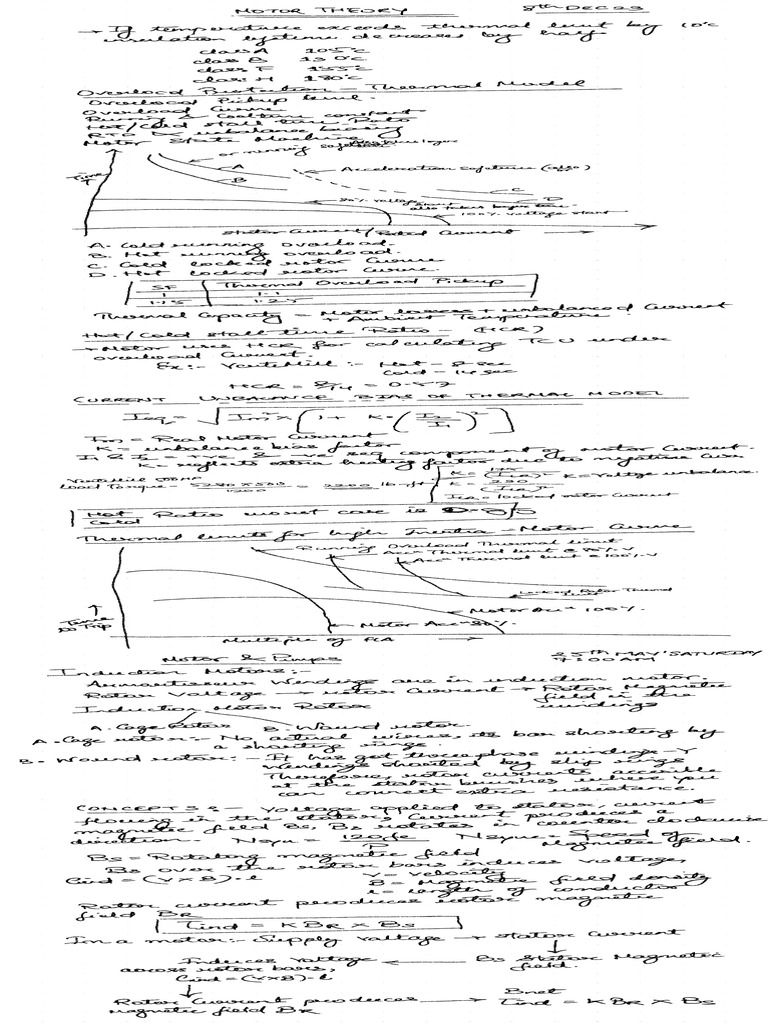 MOTOR THEORY 8th DEC 23
→ If temperature exceeds thermal limit by 10°C
insulation lifetime decreases by half.
class A 105°C
class B 130°C
class F 155°C
class H 180°C
Overload Protection - Thermal Model
Overload Pickup level.
Overload Curve
Running & Cooltime constant
Hot/Cold stall time Ratio
RTD & unbalance biasing
Motor State Machine
or running safetime
A
Acceleration safetime
B
Time
C
80% voltage
D
100% voltage start
Stator Current/Rated Current →
A. Cold running overload.
B. Hot running overload.
C. Cold locked rotor curve
D. Hot locked rotor curve.
SF Thermal Overload Pickup
1 1.1
1.15 1.25
Thermal Capacity - Motor losses + unbalanced Current
+ Ambient Temperature.
Hot/Cold stall time Ratio - (HCR)
→ Motor uses HCR for calculating TCU under
overload current.
Ex:- Hot - 8 sec
Cold - 14 sec
HCR = 8/14 = 0.57
CURRENT UNBALANCE BIAS OF THERMAL MODEL
Ieq = √ Im² × (1 + K × (I2/I1)²)
Im = Real Motor Current
K = unbalance bias factor
I1 & I2 = +ve & -ve seq component of motor current.
K = reflects extra heating factor due to negative
K = 175/(ILRA)² K = Voltage unbalance.
Load Torque - = 2200 lb-ft
K = 230/(ILRA)²
ILRA = locked motor current
Hot/Cold Ratio worst case is
Thermal limits for high Inertia - Motor Curve
Running Overload Thermal Limit
Accⁿ Thermal limit @ 80% V
Accⁿ Thermal limit @ 100% V
Locked Rotor Thermal
limit
Motor Accⁿ 100%.
Time
to Trip
Motor Accⁿ 80%
Multiple of FLA →
Motor & Pumps 25th MAY SATURDAY
7:00 AM
Induction Motors:-
Windings are in induction motor.
Rotor Voltage → rotor Current → Rotor Magnetic
field in the
windings
Induction Motor Rotor
A. Cage Rotor B. Wound rotor.
A - Cage rotor:- No actual wires, its bar shorting by
a shorting rings
B - Wound rotor:- It has got three phase windings - Y
Windings shorted by slip rings
Therefore, rotor currents accessible
at the stator brushes where you
can connect extra resistance.
CONCEPTS:- Voltage applied to stator, current
flowing in the stator, Current produces a
magnetic field Bs, Bs rotates in counter clockwise
direction. Nsync = 120fe/P Nsync = Speed of
Magnetic field.
Bs = Rotating magnetic field
Bs over the rotor bars induces voltage,
eind = (V×B)·l V = velocity
B = Magnetic field density
l = length of conductor
Rotor current produces rotor magnetic
field BR
Tind = K BR × Bs
In a motor:- Supply Voltage → Stator Current
↓
Induces Voltage ← Bs Stator Magnetic
across rotor bars, field.
eind = (V×B)·l
↓
Bnet
Rotor Current produces → Tind = K BR × Bs
Magnetic field BR